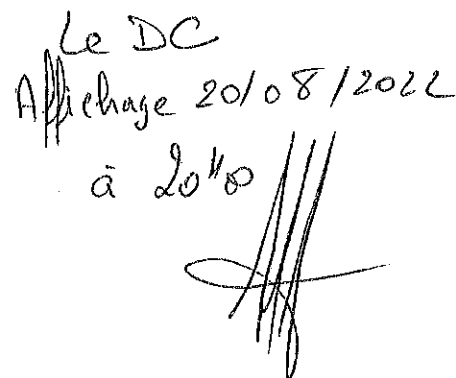 Le DC
Affichage 20/08/2022
à 20H00